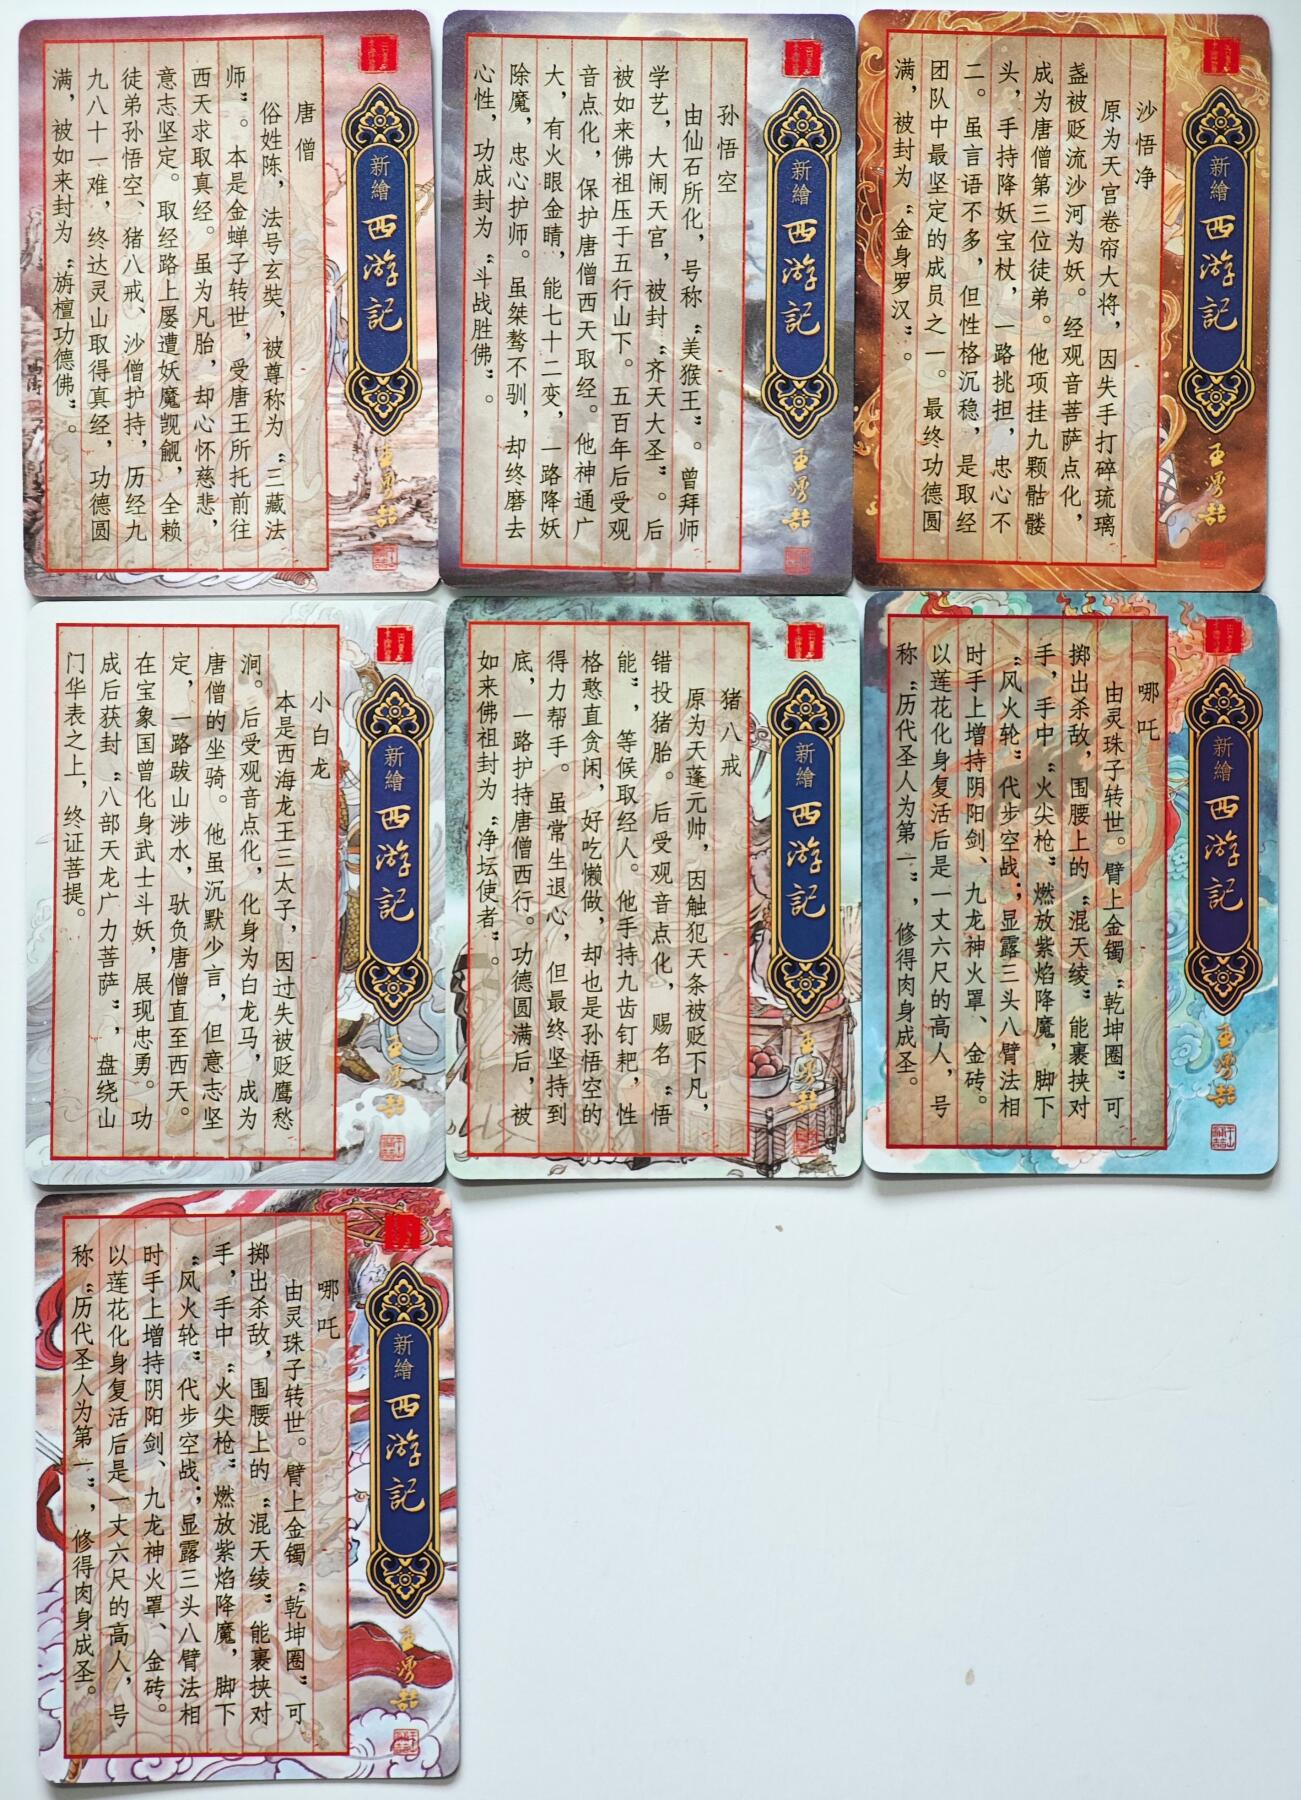 新繪
西游記
唐僧
俗姓陈，法号玄奘，被尊称为“三藏法
师”。本是金蝉子转世，受唐王所托前往
西天求取真经。虽为凡胎，却心怀慈悲，
意志坚定。取经路上屡遭妖魔觊觎，全赖
徒弟孙悟空、猪八戒、沙僧护持，历经九
九八十一难，终达灵山取得真经，功德圆
满，被如来封为“旃檀功德佛”。
新繪
西游記
孙悟空
由仙石所化，号称“美猴王”。曾拜师
学艺，大闹天宫，被封“齐天大圣”。后
被如来佛祖压于五行山下。五百年后受观
音点化，保护唐僧西天取经。他神通广
大，有火眼金睛，能七十二变，一路降妖
除魔，忠心护师。虽桀骜不驯，却终磨去
心性，功成封为“斗战胜佛”。
新繪
西游記
沙悟净
原为天宫卷帘大将，因失手打碎琉璃
盏被贬流沙河为妖。经观音菩萨点化，
成为唐僧第三位徒弟。他项挂九颗骷髅
头，手持降妖宝杖，一路挑担，忠心不
二。虽言语不多，但性格沉稳，是取经
团队中最坚定的成员之一。最终功德圆
满，被封为“金身罗汉”。
新繪
西游記
小白龙
本是西海龙王三太子，因过失被贬鹰愁
涧。后受观音点化，化身为白龙马，成为
唐僧的坐骑。他虽沉默少言，但意志坚
定，一路跋山涉水，驮负唐僧直至西天。
在宝象国曾化身武士斗妖，展现忠勇。功
成后获封“八部天龙广力菩萨”，盘绕山
门华表之上，终证菩提。
新繪
西游記
猪八戒
原为天蓬元帅，因触犯天条被贬下凡，
错投猪胎。后受观音点化，赐名“悟
能”，等候取经人。他手持九齿钉耙，性
格憨直贪闲，好吃懒做，却也是孙悟空的
得力帮手。虽常生退心，但最终坚持到
底，一路护持唐僧西行。功德圆满后，被
如来佛祖封为“净坛使者”。
新繪
西游記
哪吒
由灵珠子转世。臂上金镯“乾坤圈”可
掷出杀敌，围腰上的“混天绫”能裹挟对
手，手中“火尖枪”燃放紫焰降魔，脚下
“风火轮”代步空战；显露三头八臂法相
时手上增持阴阳剑、九龙神火罩、金砖。
以莲花化身复活后是一丈六尺的高人，号
称“历代圣人为第一”，修得肉身成圣。
新繪
西游記
哪吒
由灵珠子转世。臂上金镯“乾坤圈”可
掷出杀敌，围腰上的“混天绫”能裹挟对
手，手中“火尖枪”燃放紫焰降魔，脚下
“风火轮”代步空战；显露三头八臂法相
时手上增持阴阳剑、九龙神火罩、金砖。
以莲花化身复活后是一丈六尺的高人，号
称“历代圣人为第一”，修得肉身成圣。